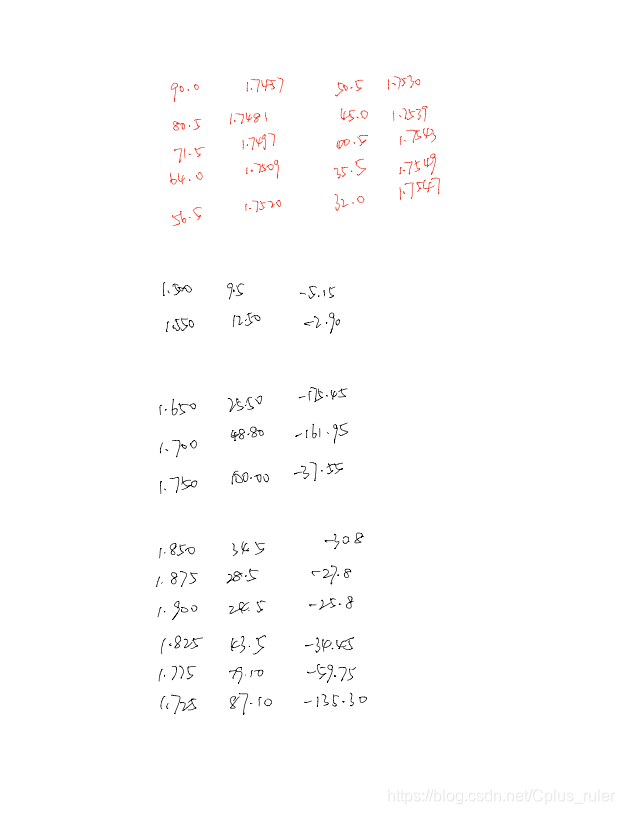 90.0 1.7457 50.5 1.7530
80.5 1.7481 45.0 1.7539
71.5 1.7497 1.7543
64.0 1.7509 35.5 1.7549
56.5 1.7520 32.0 1.7547
1.500 9.5 -5.15
1.550 12.50 -2.90
1.650 25.50 -175.45
1.700 48.80 -161.95
1.750 100.00 -37.55
1.850 34.5 -30.8
1.875 28.5 -27.8
1.900 24.5 -25.8
1.825 43.5 -34.45
1.775 -59.75
1.725 87.10 -135.30
https://blog.csdn.net/Cplus_ruler